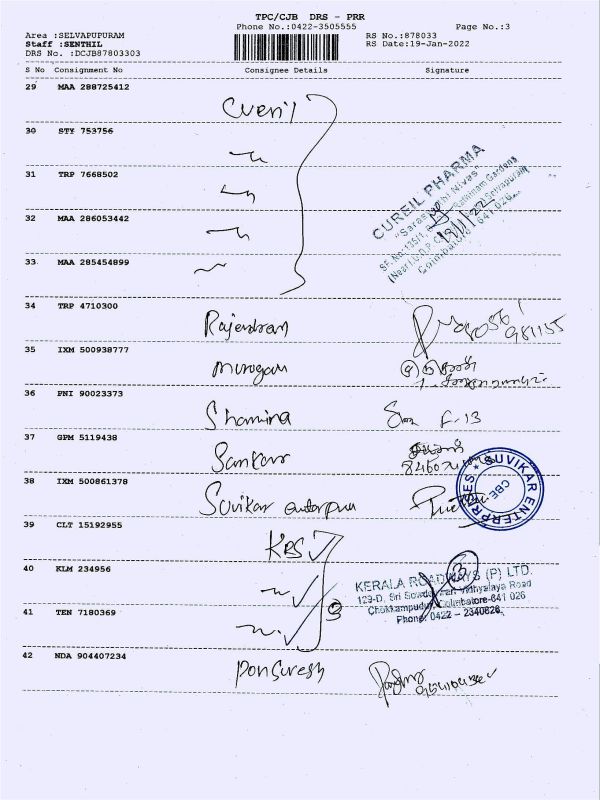 TPC/CJB DRS - PRR
Phone No.:0422-3505555 Page No.:3
Area :SELVAPUPURAM RS No.:878033
Staff :SENTHIL RS Date:19-Jan-2022
DRS No. :DCJB87803303
S No Consignment No Consignee Details Signature
29 MAA 288725412
Cureil
30 STY 753756
31 TRP 7668502
32 MAA 286053442
33 MAA 285454899
CUREIL PHARMA
Coimbatore - 641 026.
19/1/22
34 TRP 4710300
Rajendran
35 IXM 500938777
Murugan
36 PNI 90023373
Shamina F-13
37 GPM 5119438
Sankar
38 IXM 500861378
Suvikar enterprises
SUVIKAR ENTERPRISES
CBE
39 CLT 15192955
KRS
40 KLM 234956
3
KERALA ROADWAYS (P) LTD.
Chokkampudur, Coimbatore-641 026
Phone: 0422 - 2340626
41 TEN 7180369
3
42 NDA 904407234
Ponsuresh